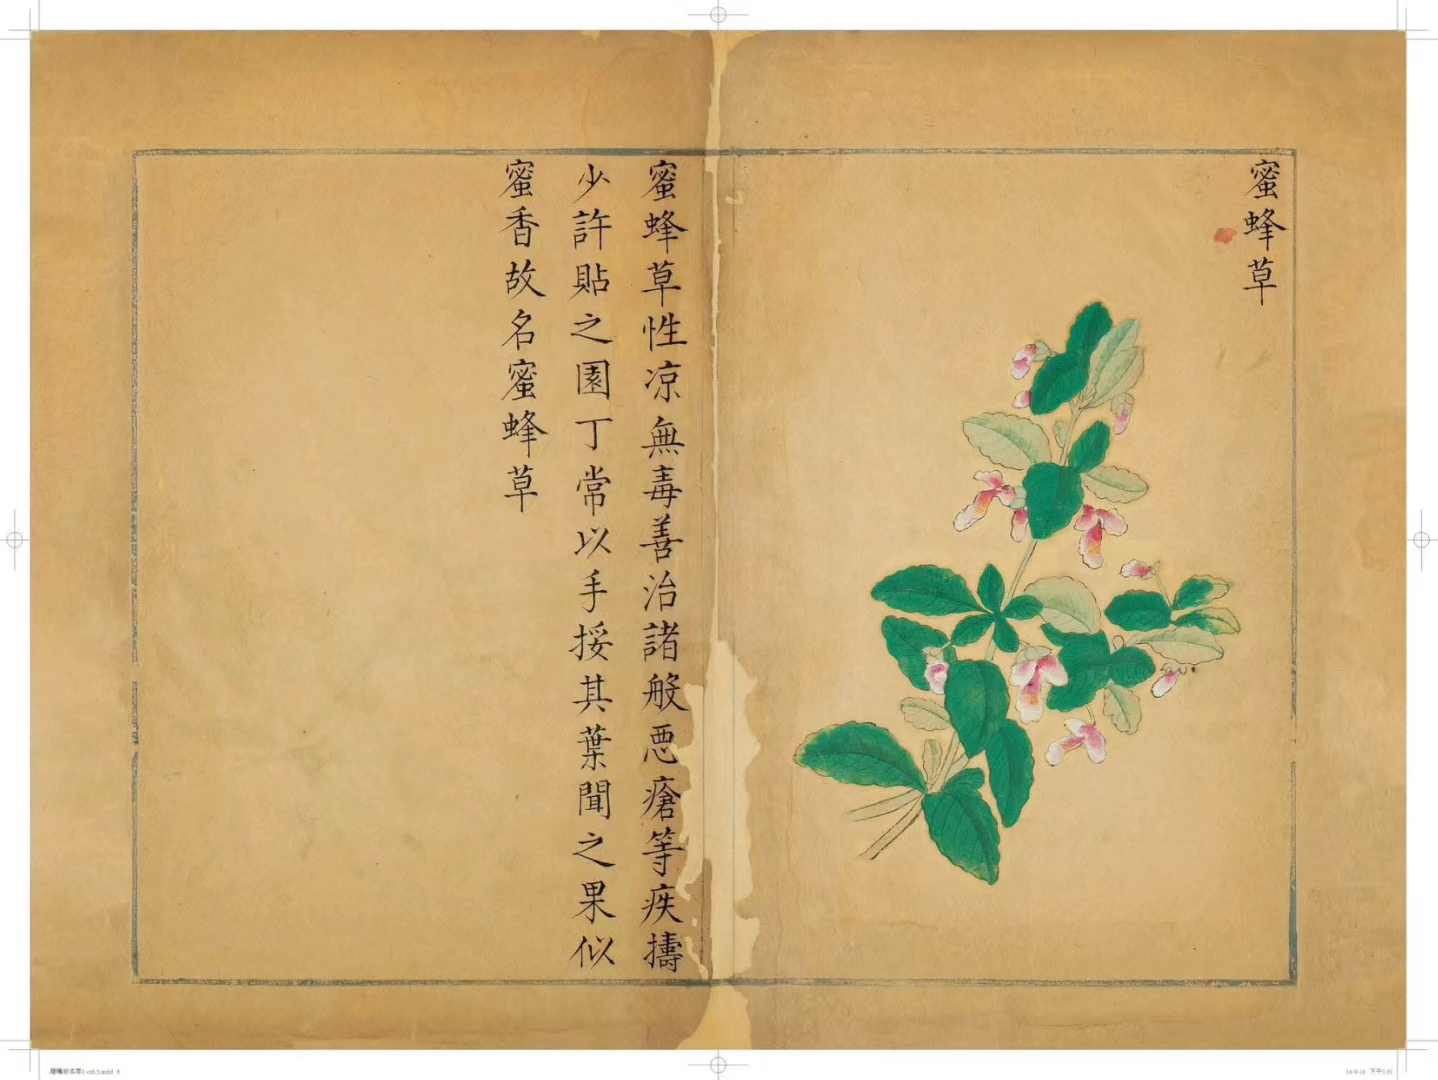 蜜蜂草
蜜蜂草性凉無毒善治諸般悪瘡等疾擣
少許貼之園丁常以手挼其葉聞之果似
蜜香故名蜜蜂草